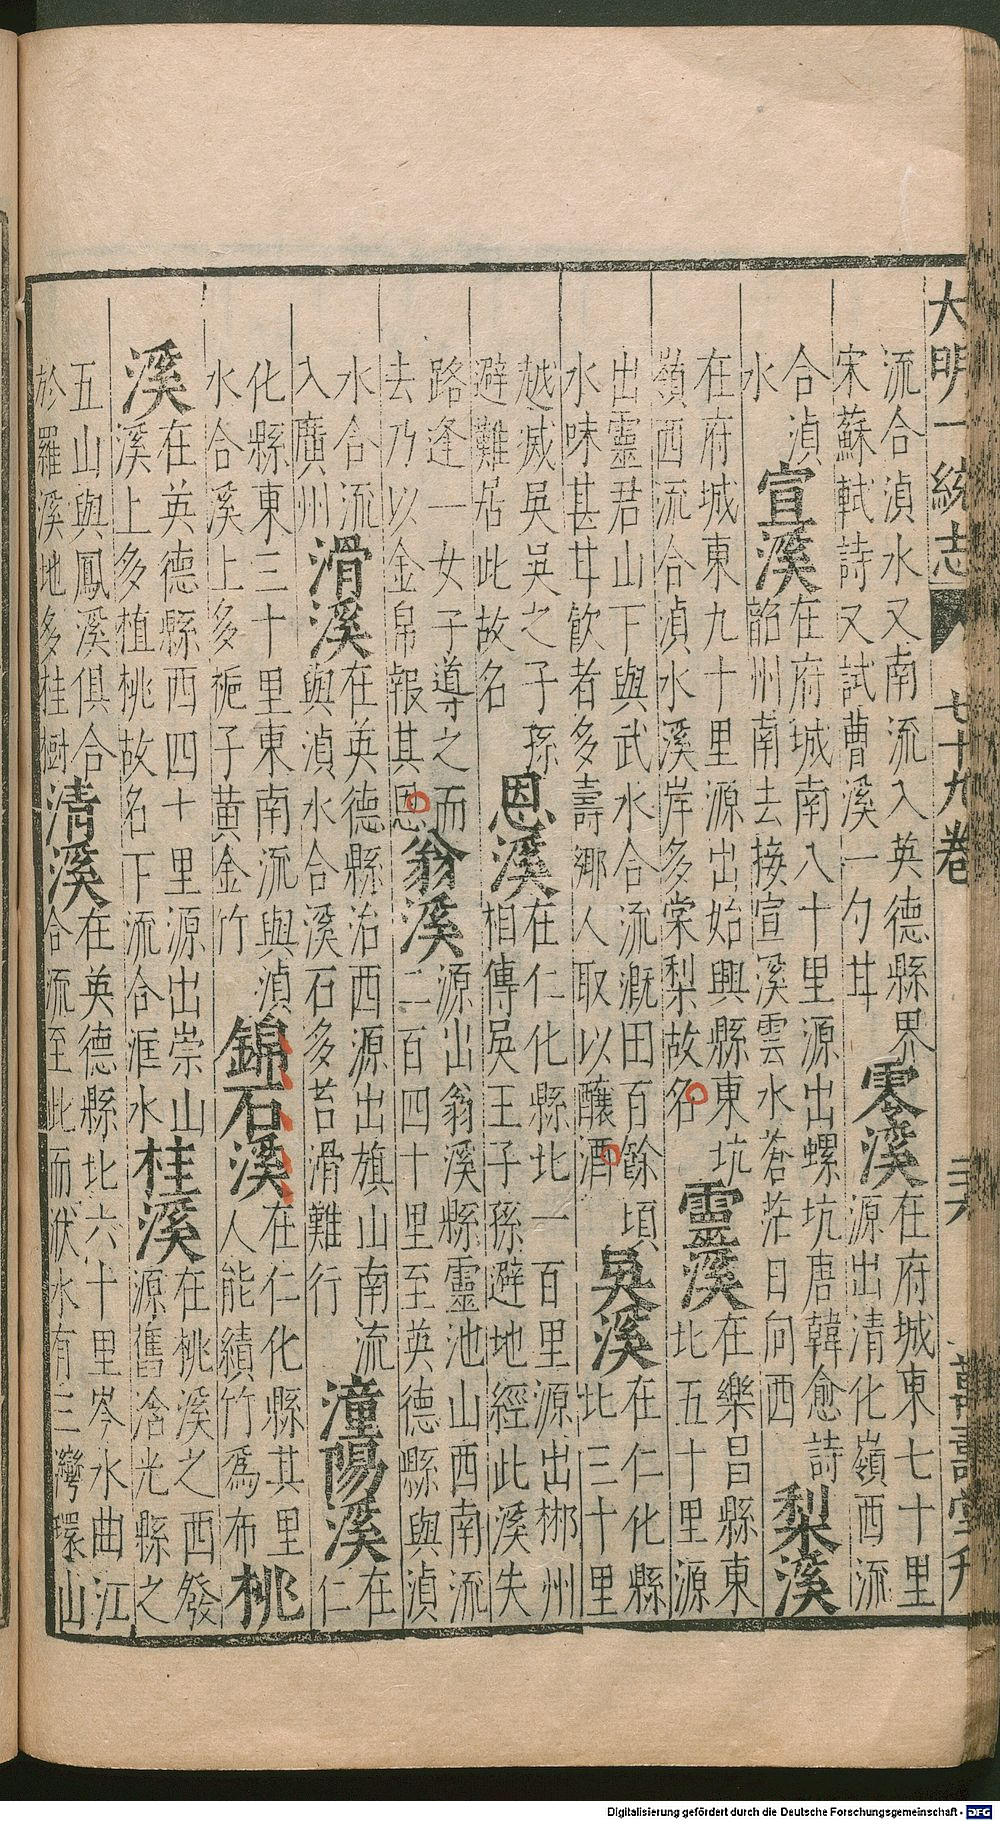 大明一統志 七十九卷 三六 萬壽堂刋
流合湞水又南流入英德縣界
宋蘇軾詩又試曹溪一勺甘
零溪
在府城東七十里
源出清化嶺西流
合湞
水
宣溪
在府城南八十里源出螺坑唐韓愈詩
韶州南去接宣溪雲水蒼茫日向西
梨溪
在府城東九十里源出始興縣東坑
嶺西流合湞水溪岸多棠梨故名
靈溪
在樂昌縣東
北五十里源
出靈君山下與武水合流溉田百餘頃
水味甚甘飲者多壽鄉人取以釀酒
吳溪
在仁化縣
北三十里
越滅吳吳之子孫
避難居此故名
恩溪
在仁化縣北一百里源出郴州
相傳吳王子孫避地經此溪失
路逢一女子導之而
去乃以金帛報其恩
翁溪
源出翁溪縣靈池山西南流
二百四十里至英德縣與湞
水合流
入廣州
滑溪
在英德縣治西源出旗山南流
與湞水合溪石多苔滑難行
潼陽溪
在
仁
化縣東三十里東南流與湞
水合溪上多梔子黃金竹
錦石溪
在仁化縣其里
人能績竹爲布
桃
溪
在英德縣西四十里源出崇山
溪上多植桃故名下流合洭水
桂溪
在桃溪之西發
源舊浛光縣之
五山與鳳溪俱合
於羅溪地多桂樹
清溪
在英德縣北六十里岑水曲江
合流至此而伏水有三灣環山
Digitalisierung gefördert durch die Deutsche Forschungsgemeinschaft - DFG